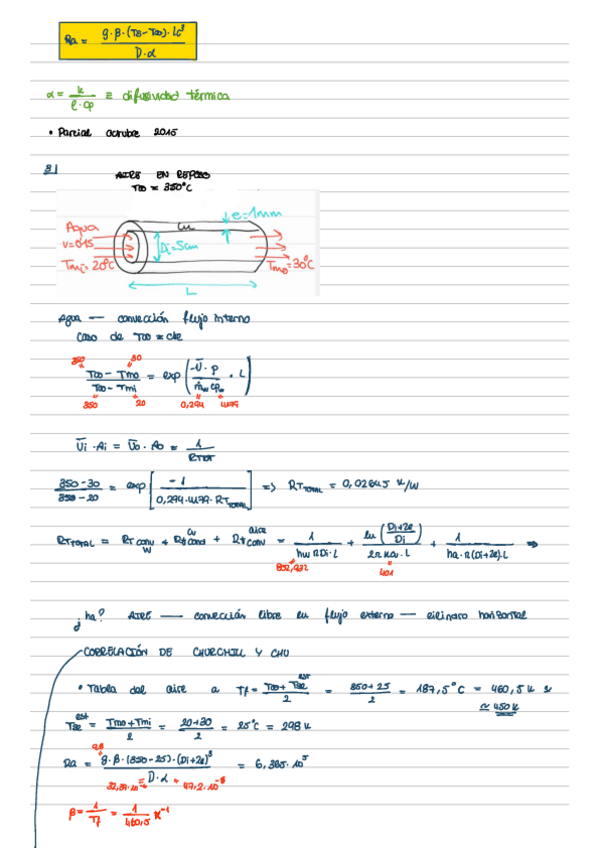 Ra = g·β·(Ts-T∞)·Lc³ / D·α
α = k / ρ·cp ≡ difusividad térmica
• Parcial octubre 2015
3|
AIRE EN REPOSO
T∞ = 350°C
Cu
e=1mm
Agua
v=0.15
Tmi = 20°C
Di=5cm
Tmo=30°C
L
Agua — convección flujo interno
Caso de T∞ = cte
350 30
T∞ - Tmo / T∞ - Tmi = exp( -Ū·p / ṁw cpw · L )
350 20 0,294 4179
Ūi·Ai = Ūo·Ao = 1 / RTOT
350-30 / 350-20 = exp[ -1 / 0,294·4179·RTTOTAL ] => RTTOTAL = 0,02645 K/W
RTTOTAL = RT conv w + Rt cond cu + Rt conv aire = 1 / hw π Di·L + ln(Di+2e / Di) / 2π kcu·L + 1 / ha·π(Di+2e)·L ⇒
852,932 401
¿ha? AIRE — convección libre en flujo externo — cilindro horizontal
CORRELACIÓN DE CHURCHILL Y CHU
• Tabla del aire a Tf = T∞ + Tse est / 2 = 350+25 / 2 = 187,5°C = 460,5 K ≈
≈ 450K
Tse est = Tmo+Tmi / 2 = 20+30 / 2 = 25°C = 298 K
9,8
Ra = g·β·(350-25)·(Di+2e)³ / D·α = 6,385·10⁵
32,39·10⁻⁶ 47,2·10⁻⁶
β = 1 / Tf = 1 / 460,5 K⁻¹